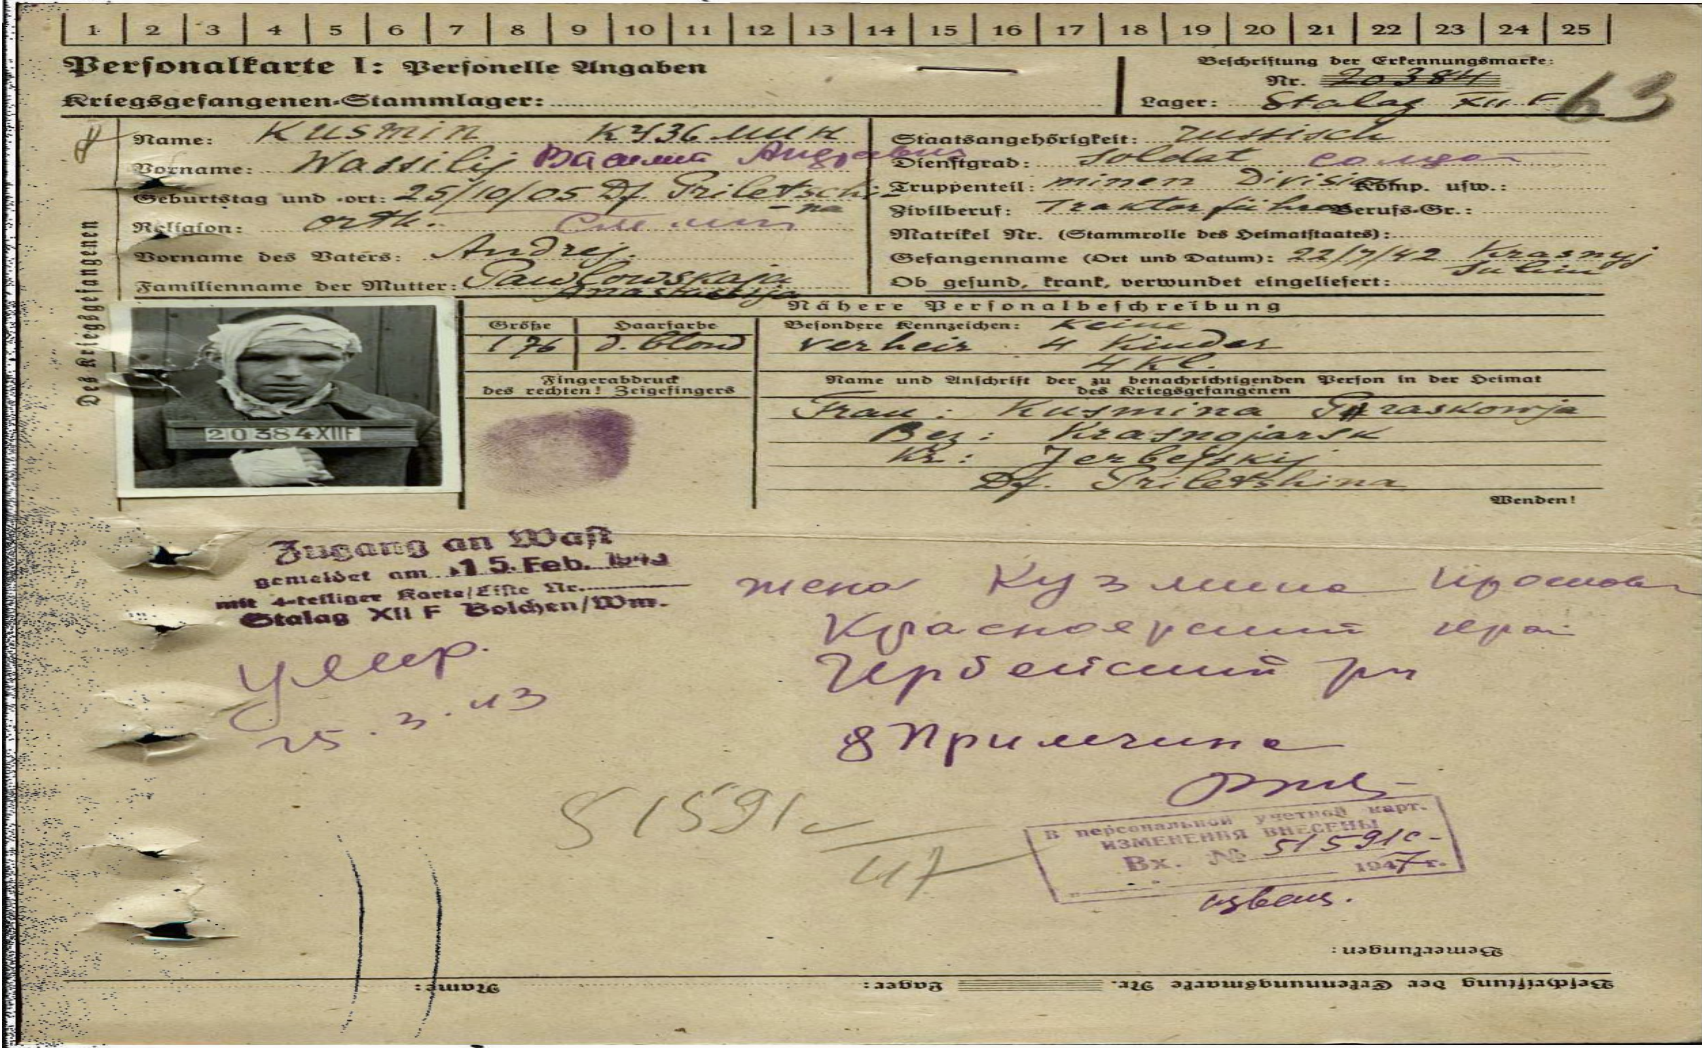 1 2 3 4 5 6 7 8 9 10 11 12 13 14 15 16 17 18 19 20 21 22 23 24 25
Personalkarte I: Personelle Angaben
Beschriftung der Erkennungsmarke:
Nr. 20384
Kriegsgefangenen-Stammlager:
Lager: Stalag XII F
63
Des Kriegsgefangenen
Name: Kusmin Кузьмин
Vorname: Wassilij Василий
Geburtstag und -ort: 25/10/05 Df. Priletschina
Religion: orth.
Vorname des Vaters: Andrej.
Familienname der Mutter: Pawlowskaja
Anastasija
Staatsangehörigkeit: russisch
Dienstgrad: Soldat солдат
Truppenteil: minen Division Komp. usw.:
Zivilberuf: Traktorführer Berufs-Gr.:
Matrikel Nr. (Stammrolle des Heimatstaates):
Gefangenname (Ort und Datum): 22/7/42 Krasnyj
Sulin
Ob gesund, krank, verwundet eingeliefert:
Nähere Personalbeschreibung
Größe
Haarfarbe
176
d. blond
Besondere Kennzeichen: Keine
verheir. 4 Kinder
4 Kl.
Fingerabdruck
des rechten! Zeigefingers
Name und Anschrift der zu benachrichtigenden Person in der Heimat
des Kriegsgefangenen
Frau: Kusmina Praskowja
Bez: Krasnojarsk
Kr: Jerbejskij
Df. Priletshina
Wenden!
20384XIIF
Zugang an Wast
gemeldet am 15. Feb. 1943
mit 4-teiliger Karte/Liste Nr.
Stalag XII F Bolchen/Wm.
умер.
25.3.43
жена Кузмина
Красноярский край
Ирбейский
51591
47
В персональной учетной карт.
ИЗМЕНЕНИЯ ВНЕСЕНЫ
Вх. № 51591с
1947 г.
извещ.
Bemerkungen:
Beschriftung der Erkennungsmarke Nr. Lager: Name: